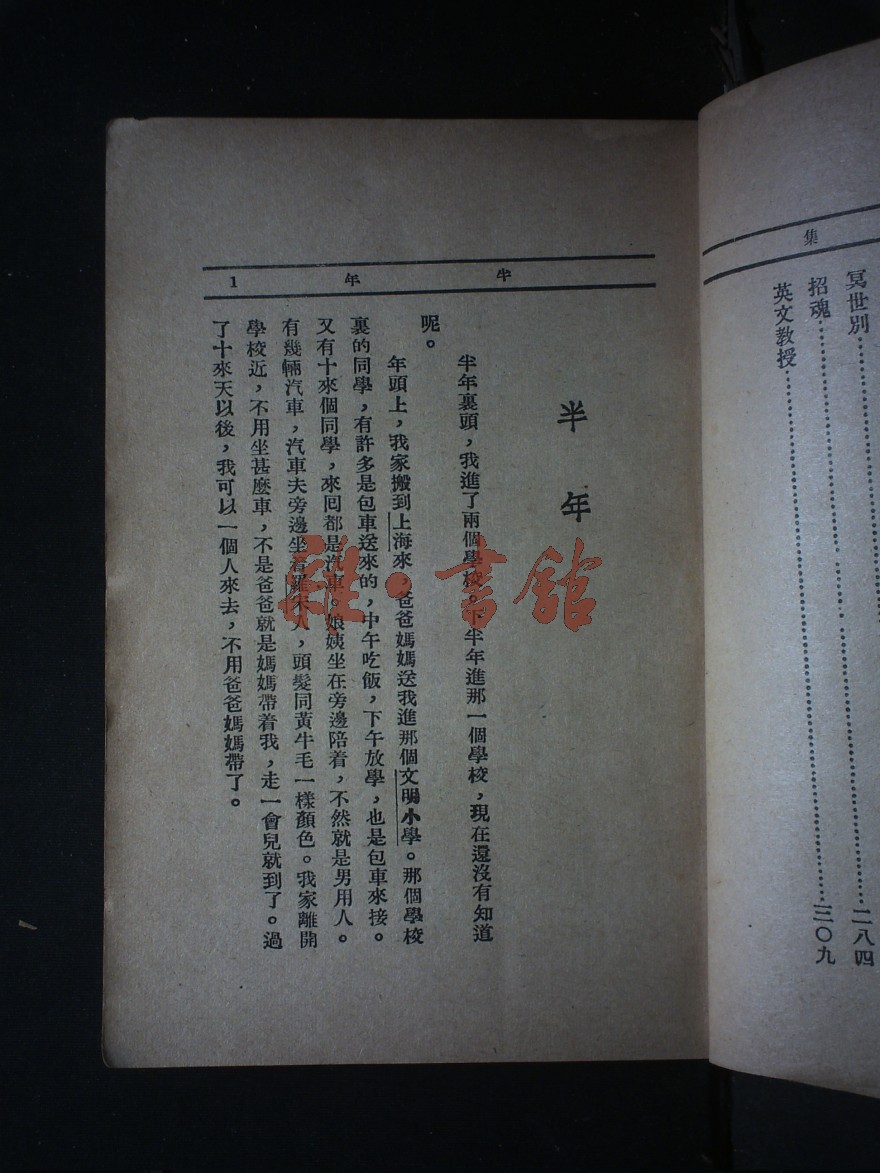 集
冥世別……二八四
招魂……
英文教授……三〇九
半年 1
半年
半年裏頭，我進了兩個學校。下半年進那一個學校，現在還沒有知道
呢。
年頭上，我家搬到上海來。爸爸媽媽送我進那個文明小學。那個學校
裏的同學，有許多是包車送來的，中午吃飯，下午放學，也是包車來接。
又有十來個同學，來回都是汽車。娘姨坐在旁邊陪着，不然就是男用人。
有幾輛汽車，汽車夫旁邊坐着羅宋人，頭髮同黃牛毛一樣顏色。我家離開
學校近，不用坐甚麼車，不是爸爸就是媽媽帶着我，走一會兒就到了。過
了十來天以後，我可以一個人來去，不用爸爸媽媽帶了。
雜·書館